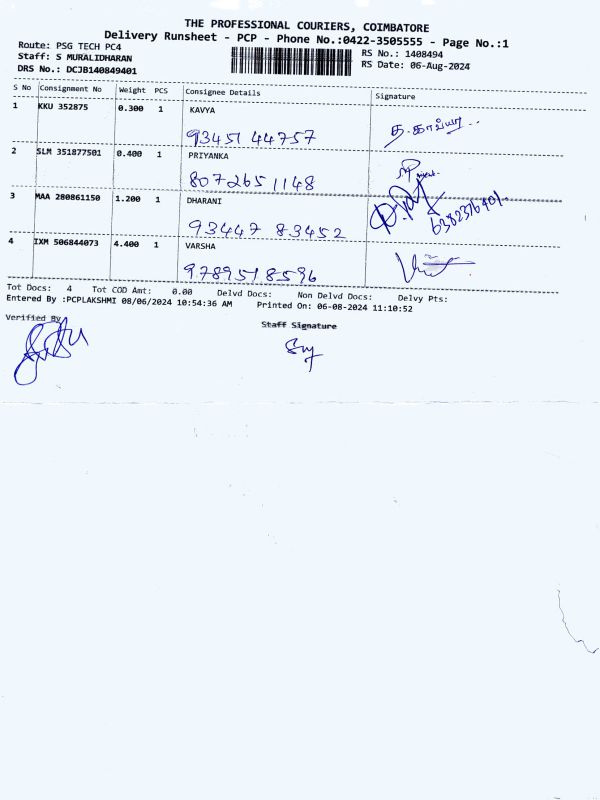 THE PROFESSIONAL COURIERS, COIMBATORE
Delivery Runsheet - PCP - Phone No.:0422-3505555 - Page No.:1
Route: PSG TECH PC4
RS No.: 1408494
Staff: S MURALIDHARAN
RS Date: 06-Aug-2024
DRS No.: DCJB140849401
S No Consignment No Weight PCS Consignee Details Signature
1 KKU 352875 0.300 1 KAVYA
93451 44757 த. காவ்யா
2 SLM 351877501 0.400 1 PRIYANKA
8072651148
3 MAA 280861150 1.200 1 DHARANI
93447 83452 6382376401
4 IXM 506844073 4.400 1 VARSHA
9789518596
Tot Docs: 4 Tot COD Amt: 0.00 Delvd Docs: Non Delvd Docs: Delvy Pts:
Entered By :PCPLAKSHMI 08/06/2024 10:54:36 AM Printed On: 06-08-2024 11:10:52
Verified By Staff Signature